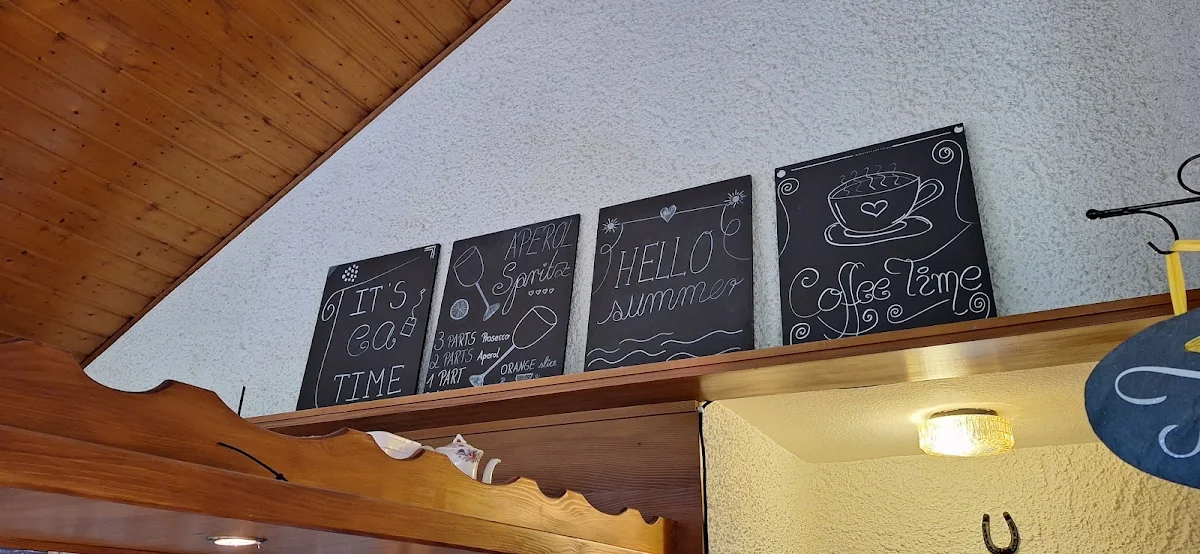 IT'S
Ea
TIME
APEROL
Spritz
3 PARTS Prosecco
2 PARTS Aperol
1 PART
ORANGE slice
HELLO
summer
Coffee Time